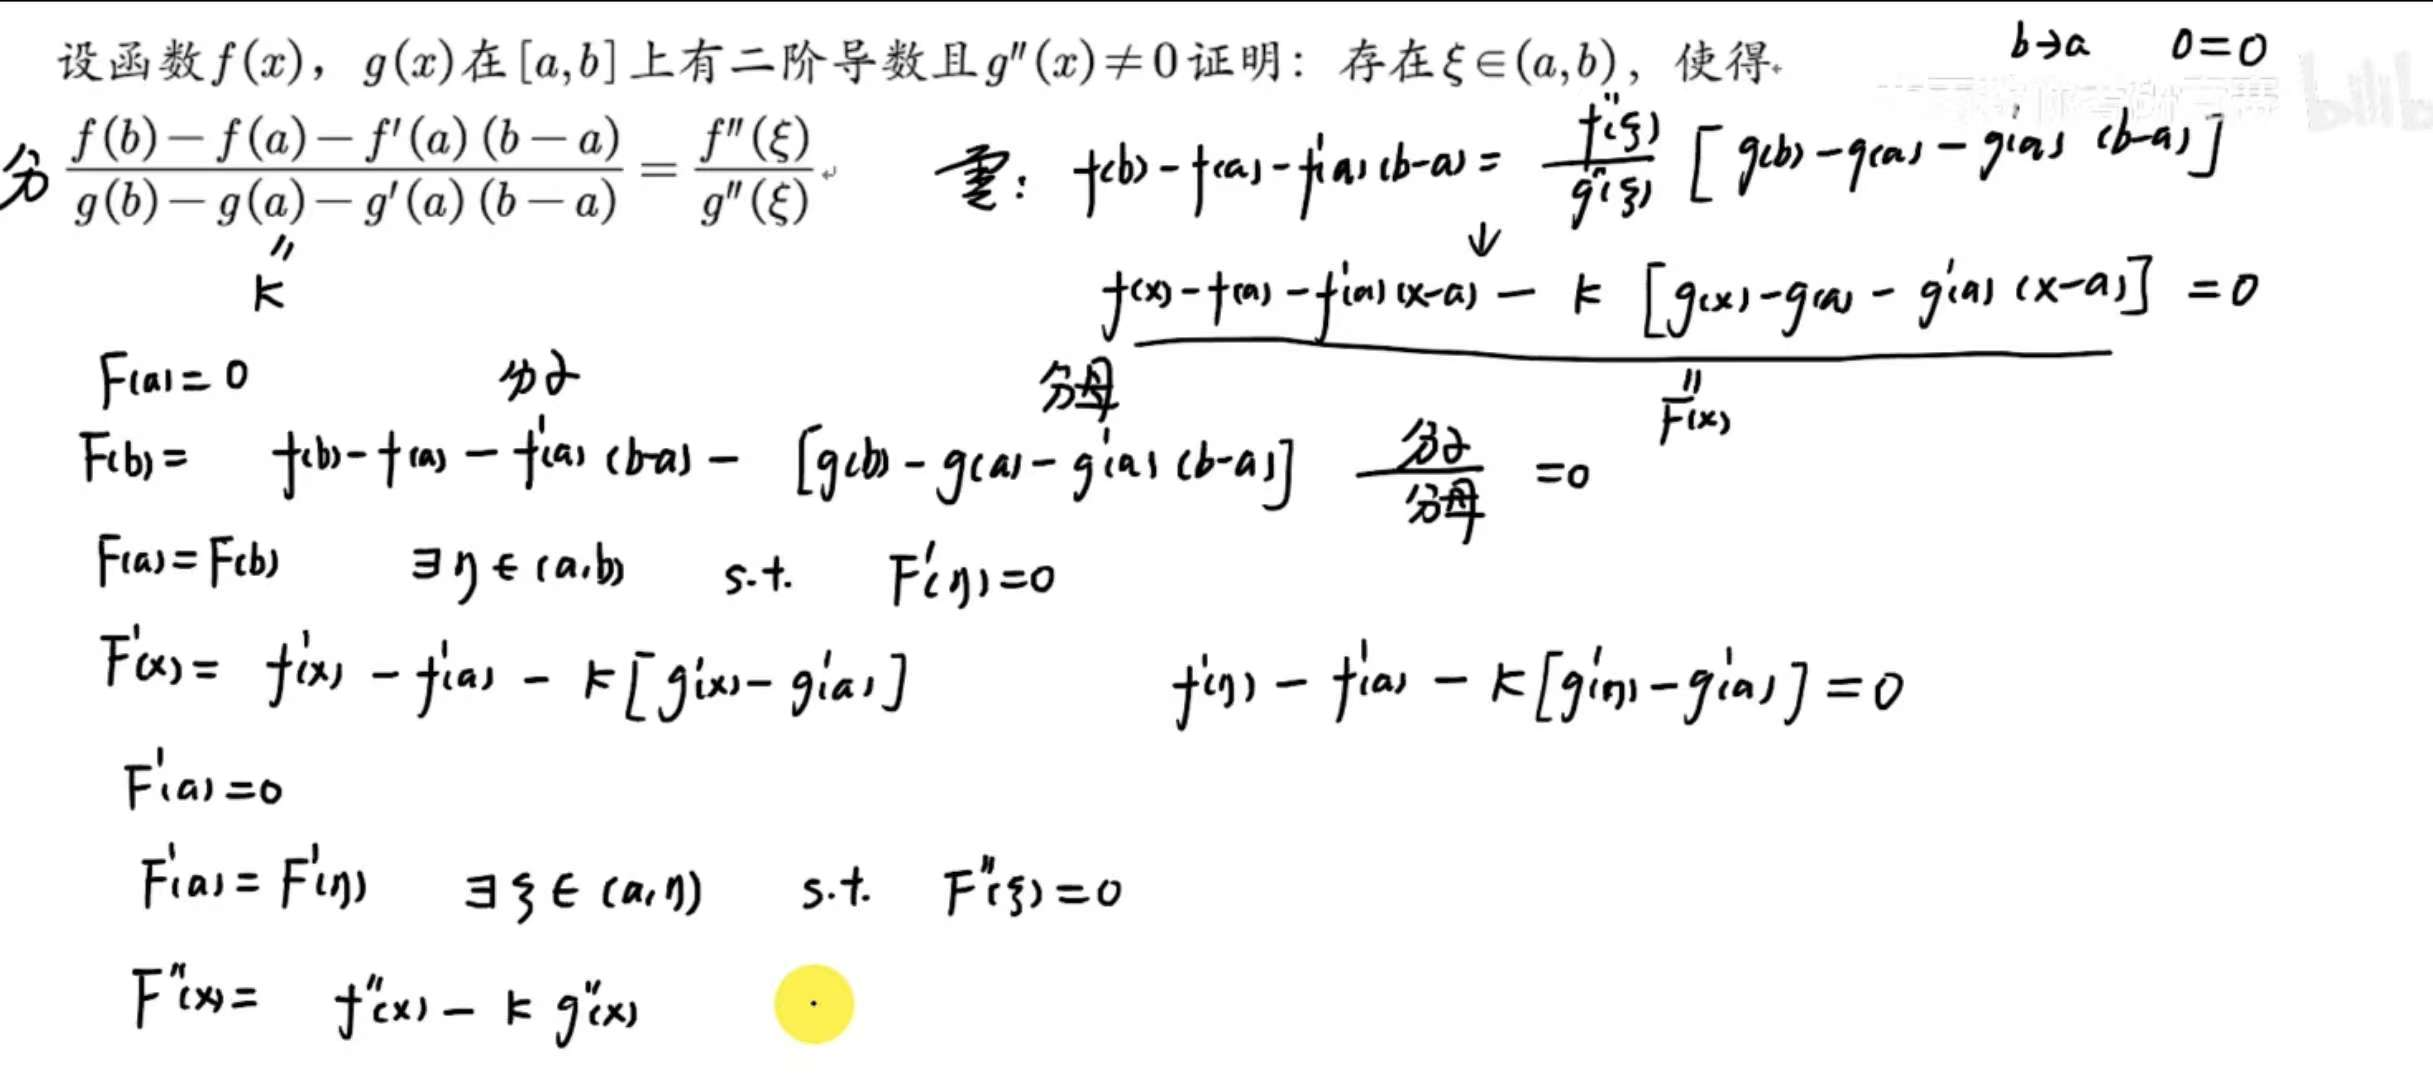 设函数f(x)，g(x)在[a,b]上有二阶导数且g″(x)≠0证明：存在ξ∈(a,b)，使得
b→a 0=0
分 \frac{f(b)-f(a)-f′(a)(b-a)}{g(b)-g(a)-g′(a)(b-a)} = \frac{f″(ξ)}{g″(ξ)}
需: f(b)-f(a)-f′(a)(b-a) = \frac{f″(ξ)}{g″(ξ)} [g(b)-g(a)-g′(a)(b-a)]
bilib
″
k
↓
f(x)-f(a)-f′(a)(x-a) - k [g(x)-g(a)-g′(a)(x-a)] = 0
″
F(x)
F(a)=0 分子 分母
F(b)= f(b)-f(a)-f′(a)(b-a) - [g(b)-g(a)-g′(a)(b-a)] \frac{分子}{分母} =0
F(a)=F(b) ∃η∈(a,b) s.t. F′(η)=0
F′(x)= f′(x)-f′(a)-k[g′(x)-g′(a)] f′(η)-f′(a)-k[g′(η)-g′(a)]=0
F′(a)=0
F′(a)=F′(η) ∃ξ∈(a,η) s.t. F″(ξ)=0
F″(x)= f″(x)-k g″(x)